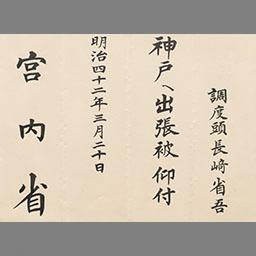 調度頭長﨑省吾
神戸へ出張被仰付
明治四十二年三月二十日
宮内省